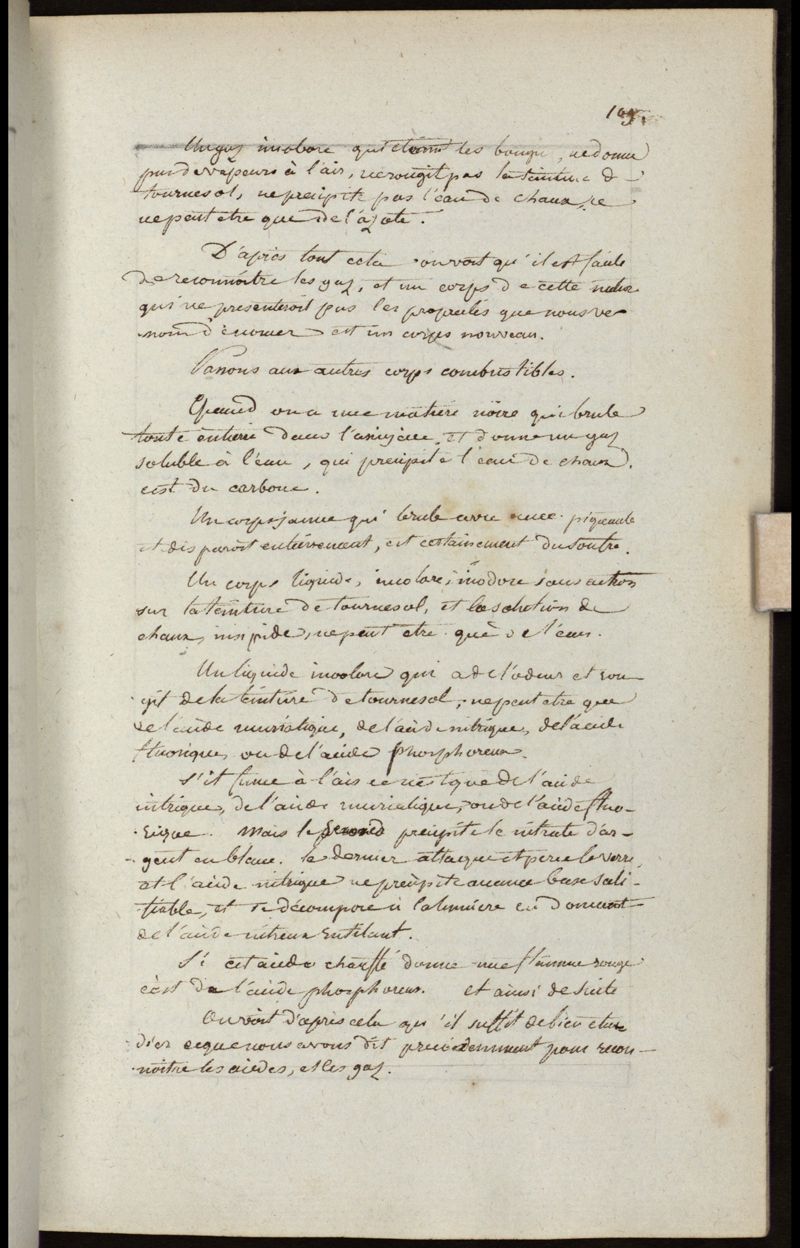 Un gaz inodore qui éteint les bougies, ne donne
pas de vapeurs à l'air, ne rougit pas la teinture de
tournesol, ne precipite pas l'eau de chaux, ce
ne peut etre que de l'azote.
D'après tout cela on voit qu'il est facile
de reconnoitre les gaz, et un corps de cette nature
qui ne presenteroit pas les propriétés que nous ve-
nons d'énoncer est un corps nouveau.
Passons aux autres corps combustibles.
Quand on a une matière noire qui brule
toute entiere dans l'oxigène, et donne un gaz
soluble à l'eau, qui precipite l'eau de chaux,
c'est du carbone.
Un corps jaune qui brule avec piquante
et disparoit entièrement, est certainement du soufre.
Un corps liquide, incolore, inodore sans action
sur la teinture de tournesol, et la solution de
chaux, insipide, ne peut etre que de l'eau.
Un liquide incolore qui a de l'odeur et rou-
git de la teinture de tournesol, ne peut etre que
de l'acide muriatique, de l'acide nitrique, de l'acide
fluorique, ou de l'acide phosphoreux.
S'il fume à l'air ce n'est que de l'acide
nitrique, de l'acide muriatique, ou de l'acide fluo-
rique. Mais le second precipite le nitrate d'ar-
gent en blanc. le dernier attaque et perce le verre,
et l'acide nitrique ne precipite aucune base sali-
fiable, et se décompose à la lumiere en donnant
de l'acide nitreux rutilant.
Si cet acide chauffé donne une flamme rouge
c'est de l'acide phosphoreux. et ainsi de suite
On voit d'après cela qu'il suffit de bien etu-
dier ce que nous avons dit precedemment pour recon-
noitre les acides, et les gaz.